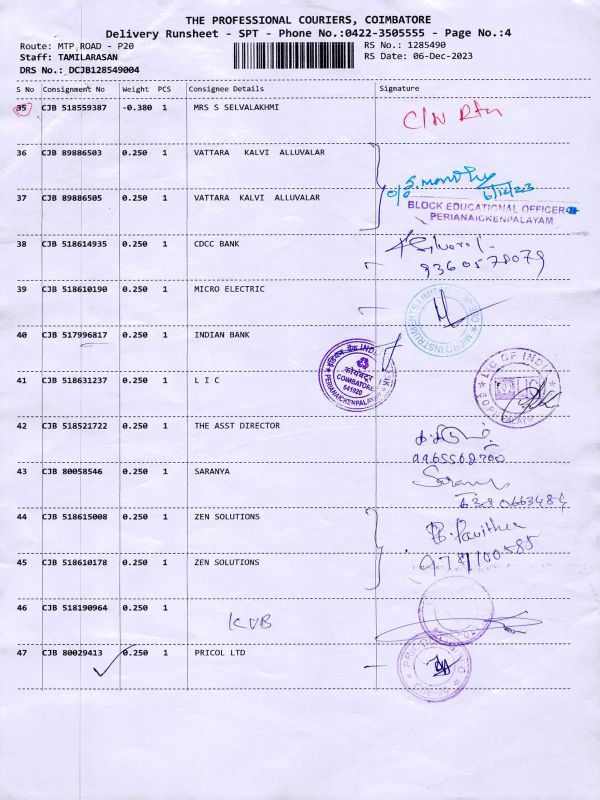 THE PROFESSIONAL COURIERS, COIMBATORE
Delivery Runsheet - SPT - Phone No.:0422-3505555 - Page No.:4
Route: MTP ROAD - P20 RS No.: 1285490
Staff: TAMILARASAN RS Date: 06-Dec-2023
DRS No.: DCJB128549004
S No Consignment No Weight PCS Consignee Details Signature
35 CJB 518559387 -0.380 1 MRS S SELVALAKHMI
C/N Rtn
36 CJB 89886503 0.250 1 VATTARA KALVI ALLUVALAR
6/12/23
37 CJB 89886505 0.250 1 VATTARA KALVI ALLUVALAR
BLOCK EDUCATIONAL OFFICER
PERIANAICKENPALAYAM
38 CJB 518614935 0.250 1 CDCC BANK
9360578079
39 CJB 518610190 0.250 1 MICRO ELECTRIC
MICRO INSTRUMENTS LIMITED
40 CJB 517996817 0.250 1 INDIAN BANK
इंडियन बैंक INDIAN BANK
कोयंबटूर
COIMBATORE
641020
PERIANAICKENPALAYAM
41 CJB 518631237 0.250 1 L I C
L.I.C OF INDIA
42 CJB 518521722 0.250 1 THE ASST DIRECTOR
9965562700
43 CJB 80058546 0.250 1 SARANYA
Saranya
6380663484
44 CJB 518615008 0.250 1 ZEN SOLUTIONS
B. Pavithra
45 CJB 518610178 0.250 1 ZEN SOLUTIONS
9787100585
46 CJB 518190964 0.250 1
KVB
47 CJB 80029413 0.250 1 PRICOL LTD
PRICOL